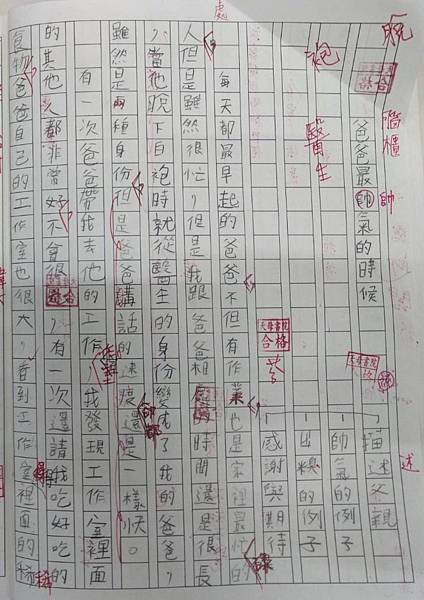 脫
牆櫃
帥
爸爸最帥氣的時候
袍
醫生
述
描述父親
帥氣的例子
出糗的例子
感謝與期待
天母書院
合格
處
每天都最早起的爸爸不但有作業也是家裡最忙的
人但是雖然很忙,但是我跟爸爸相處的時間還是很長
,當他脫下白袍時就從醫生的身份變成了我的爸爸,
雖然是兩種身份但是爸爸講話的速度還是一樣快。
有一次爸爸帶我去他的工作室我發現工作室裡面
的其他人都非常好不會很,有一次還請我吃好吃的
食物爸爸自己的工作室也很大,看到工作室裡面的